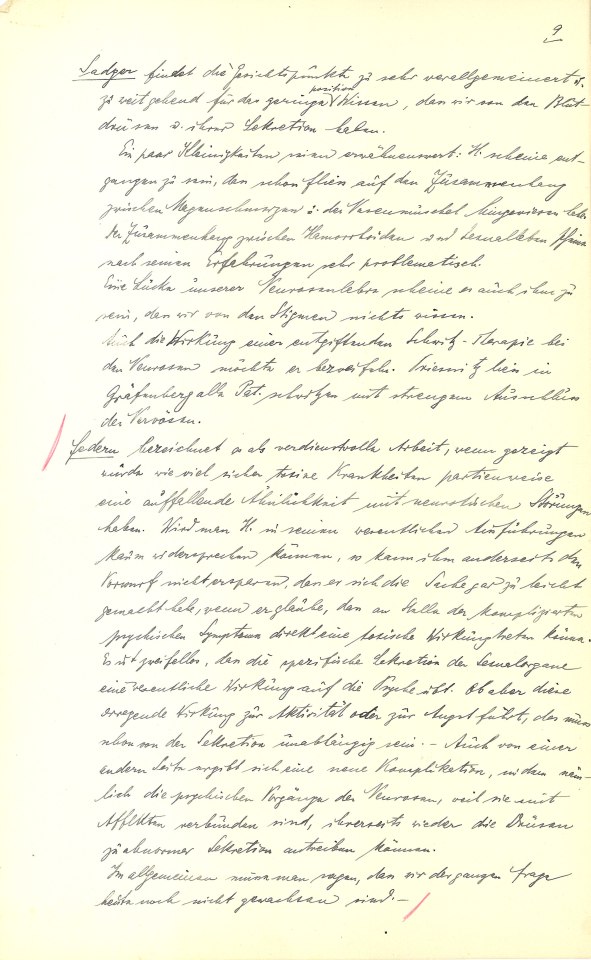 9
Sadger findet die Gesichtspunkte zu sehr verallgemeinert u.
zu weit gehend für das geringe position Wissen, das wir von den Blut-
drüsen u. ihrer Sekretion haben.
Ein paar Kleinigkeiten seien erwähnenswert: H. scheine ent-
gangen zu sein, dass schon Fliess auf den Zusammenhang
zwischen Magenschmerzen u. der Nasenmuschel hingewiesen habe.
Der Zusammenhang zwischen Hämorrhoiden und Sexualleben scheine
nach seinen Erfahrungen sehr problematisch.
Eine Lücke unserer Neurosenlehre scheine es auch ihm zu
sein, dass wir von den Stigmen nichts wissen.
Auch die Wirkung einer entgiftenden Schwitz-Therapie bei
den Neurosen möchte er bezweifeln. Priessnitz liess in
Gräfenberg alle Pat. schwitzen mit strengem Ausschluss
der Nervösen.
Federn bezeichnet es als verdienstvolle Arbeit, wenn gezeigt
würde wie viel sicher toxine Krankheiten partienweise
eine auffallende Ähnlichkeit mit neurotischen Störungen
haben. Wird man H. in seinen wesentlichen Ausführungen
kaum widersprechen können, so kann ihm anderseits den
Vorwurf nicht ersparen, dass er sich die Sache gar zu leicht
gemacht habe, wenn er glaube, dass an Stelle der komplizierten
psychischen Symptome direkt eine toxische Wirkung treten könne.
Es ist zweifellos, dass die spezifische Sekretion der Sexualorgane
eine wesentliche Wirkung auf die Psyche übt. Ob aber diese
erregende Wirkung zur Aktivität oder zur Angst führt, das muss
schon von der Sekretion unabhängig sein. – Auch von einer
andern Seite ergibt sich eine neue Komplikation, indem näm-
lich die psychischen Vorgänge der Neurosen, weil sie mit
Affekten verbunden sind, ihrerseits wieder die Drüsen
zu abnormer Sekretion antreiben können.
Im allgemeinen muss man sagen, dass wir der ganzen Frage
heute noch nicht gewachsen sind. –